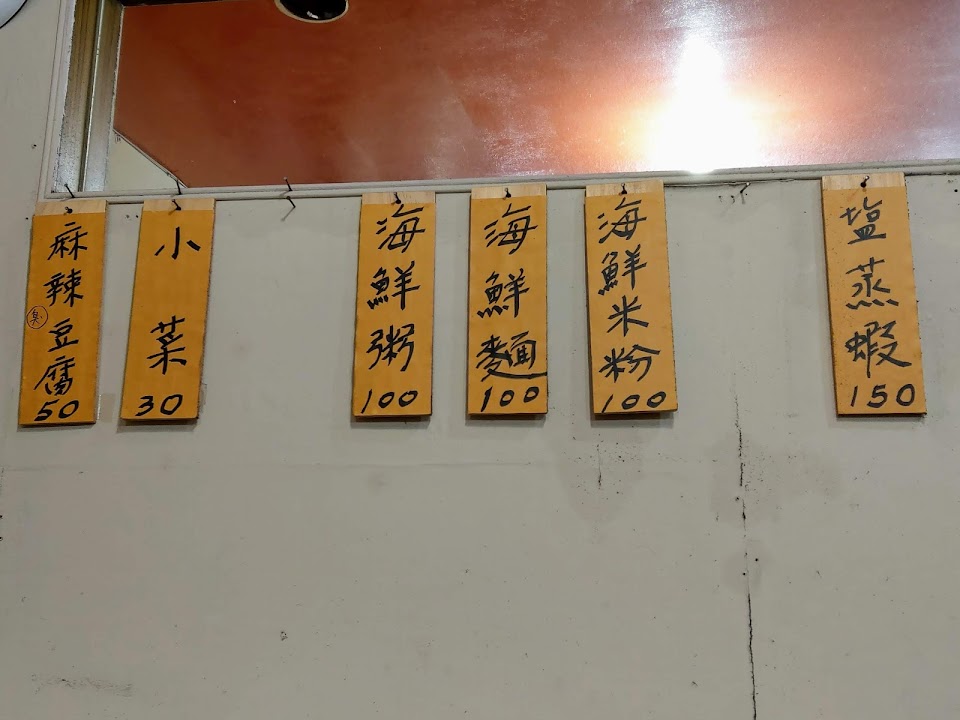 麻辣臭豆腐
50
小菜
30
海鮮粥
100
海鮮麵
100
海鮮米粉
100
塩蒸蝦
150